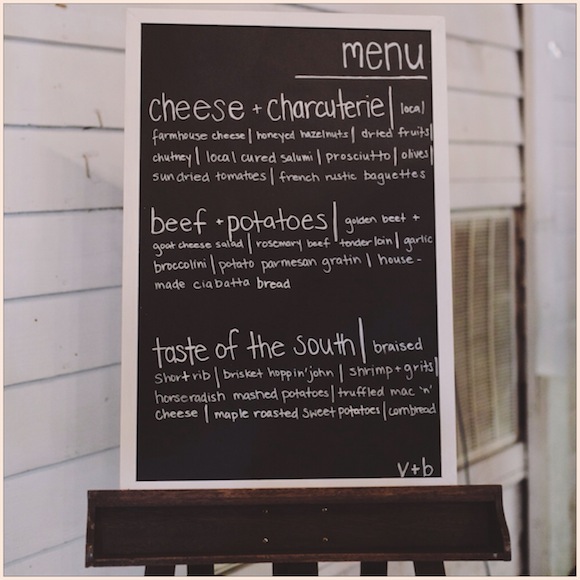 menu
cheese + charcuterie | local
farmhouse cheese | honeyed hazelnuts | dried fruits |
chutney | local cured salumi | prosciutto | olives |
sundried tomatoes | french rustic baguettes
beef + potatoes | golden beet +
goat cheese salad | rosemary beef tenderloin | garlic
broccolini | potato parmesan gratin | house-
made ciabatta bread
taste of the south | braised
short rib | brisket hoppin' john | shrimp + grits |
horseradish mashed potatoes | truffled mac 'n'
cheese | maple roasted sweet potatoes | cornbread
v+b